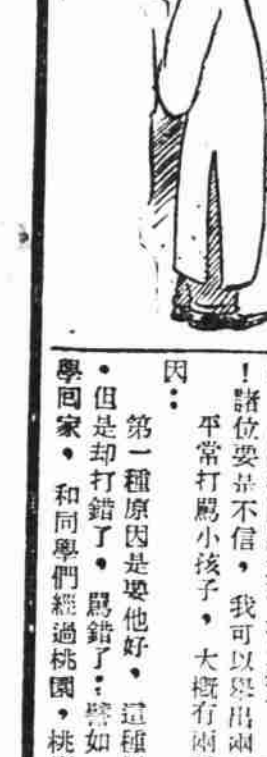 ！諸位要是不信，我可以舉出兩
平常打罵小孩子，大概有兩
因：
第一種原因是要他好，這種
。但是却打錯了，罵錯了：譬如
學回家，和同學們經過桃園，桃